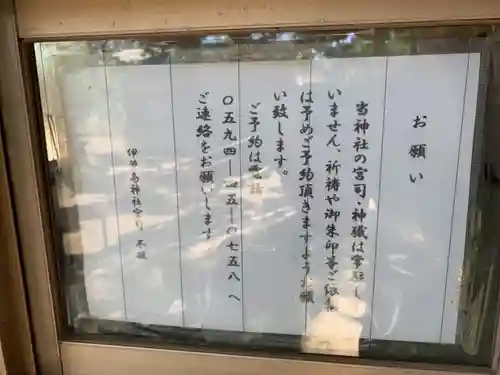 お願い
当神社の宮司・神職は常駐し
いません、祈祷や御朱印等ご依
は予めご予約頂きますようお願
い致します。
ご予約は電話
〇五九四―四五―〇七五八 へ
ご連絡をお願いします
神社守り